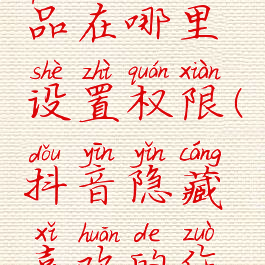 品在哪里
shè zhì quán xiàn
设置权限(
dǒu yīn yǐn cáng
抖音隐藏
xǐ huān de zuò
喜欢的作